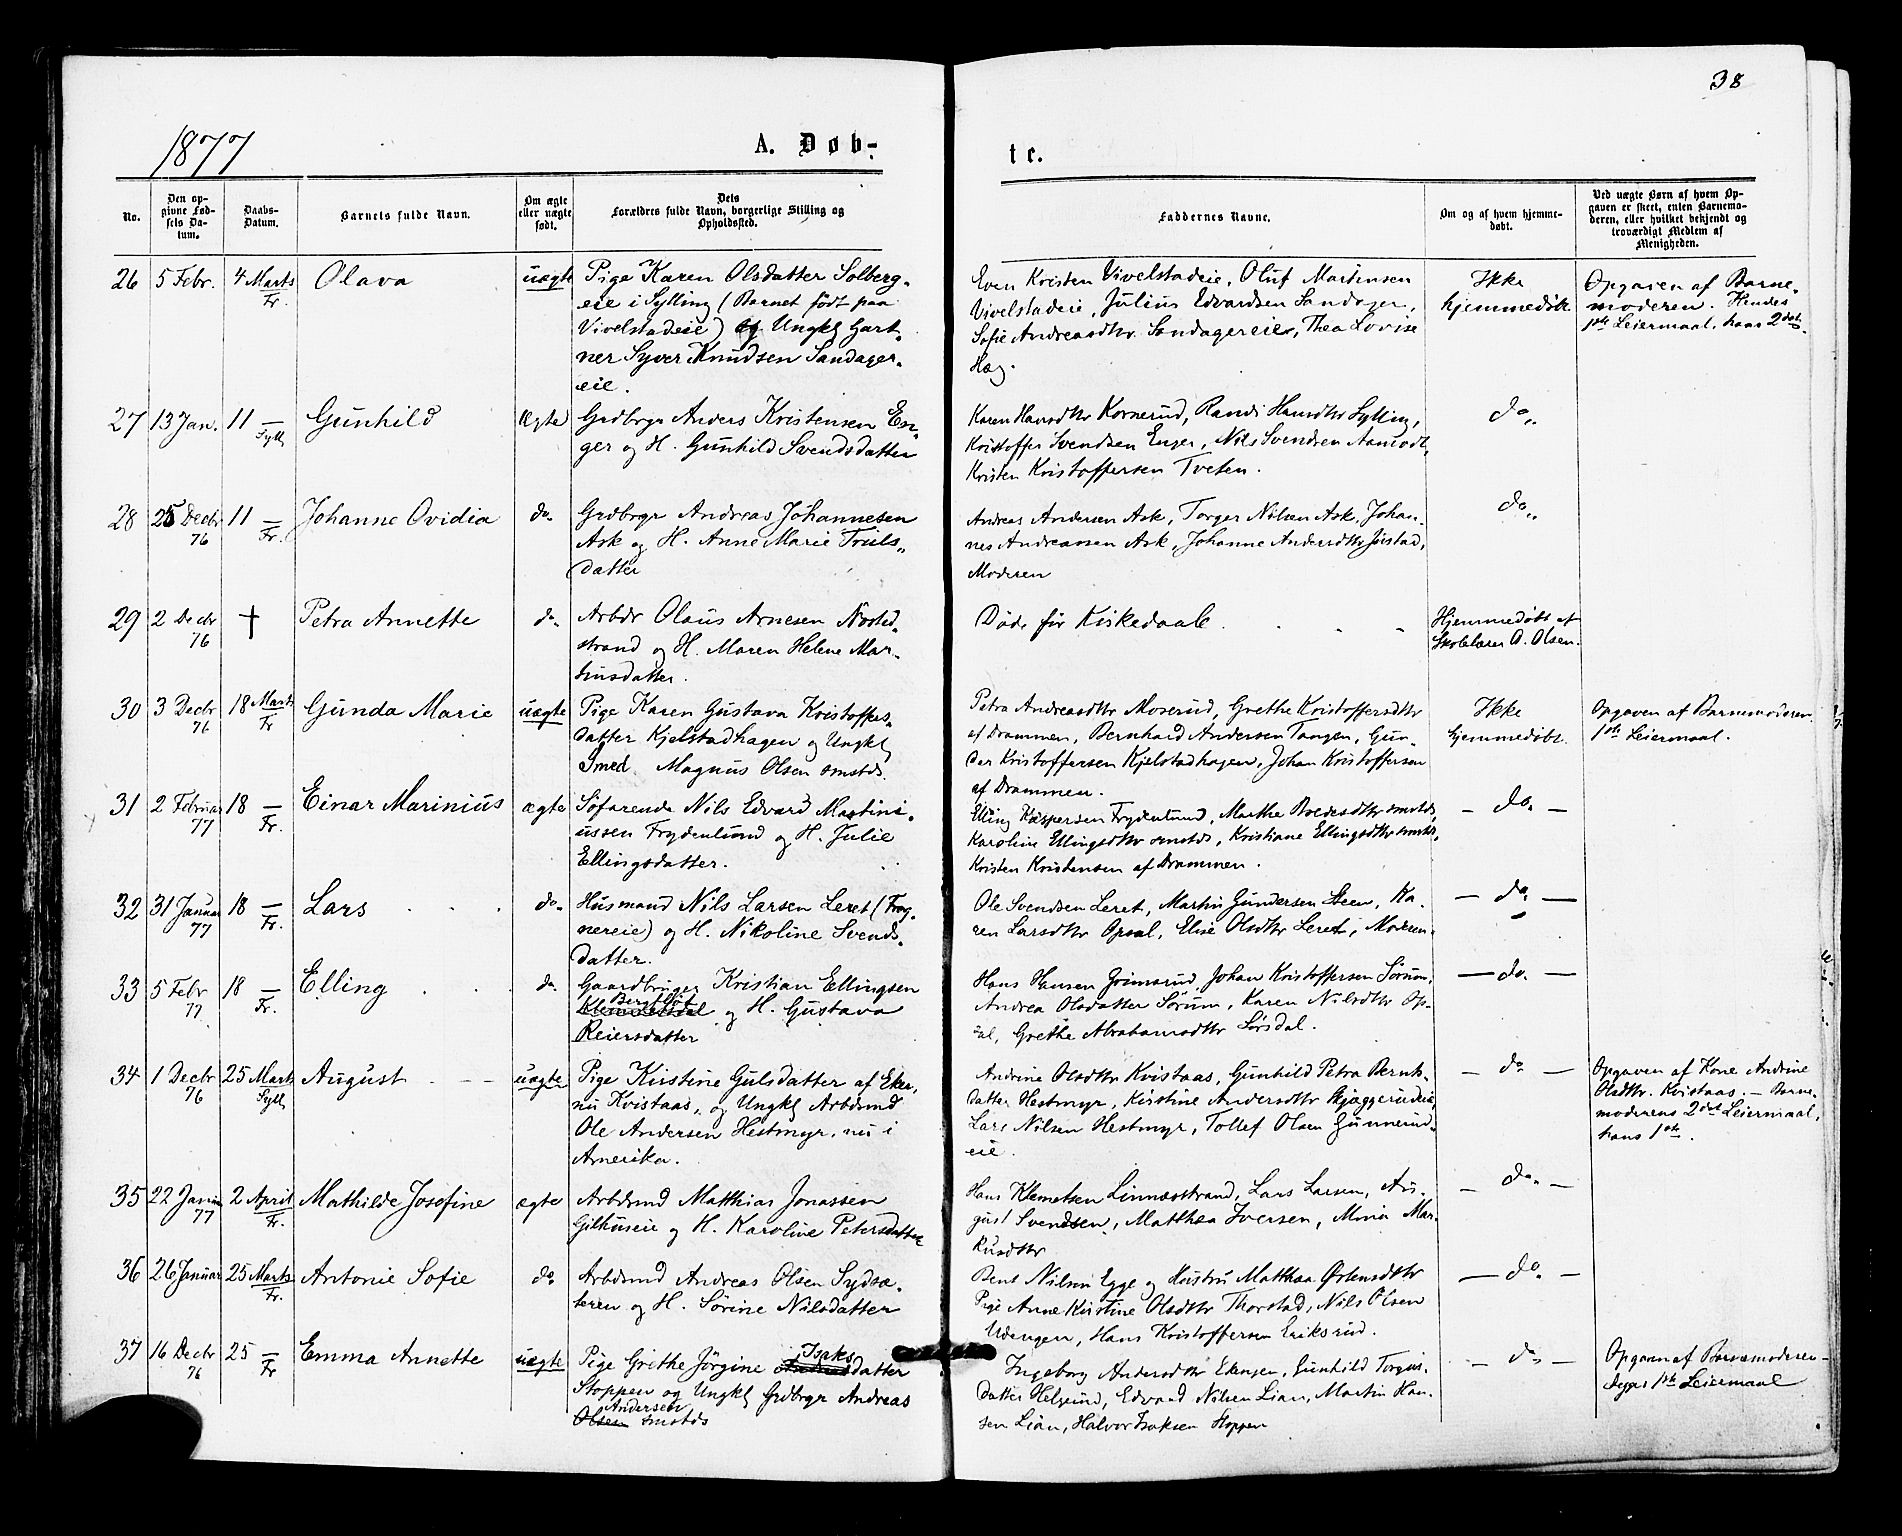 38
1877
A. Døb-
te.
No.
Den op-
givne Fød-
sels Da-
tum.
Daabs-
Datum.
Barnets fulde Navn.
Om ægte
eller uægte
født.
Dets
Forældres fulde Navn, borgerlige Stilling og
Opholdssted.
Faddernes Navne.
Om og af hvem hjemme-
døbt.
Ved uægte Børn af hvem Op-
gaven er skeet, enten Barnemo-
deren, eller hvilket bekjendt og
troværdigt Medlem af
Menigheden.
26 5 Febr. 4 Marts Fr. Olava uægte
Pige Karen Olsdatter Solberg-
eie i Sylling (Barnet født paa
Vivelstadeie) og Ungkl Gart-
ner Syver Knudsen Sandager-
eie.
Even Kristen Vivelstadeie, Oluf Martensen
Vivelstadeie, Julius Edvardsen Sandager,
Sofie Andreasdtr. Sandagereie, Thea Lovise
Hag.
Ikke
hjemmedøbt.
Opgaven af Barne-
moderen. Hendes
1ste Leiermaal, hans 2det.
27 13 Jan. 11 — Syll Gunhild Ægte
Grdbrgr Anders Kristensen En-
ger og H. Gunhild Svendsdatter
Karen Hansdtr Kornerud, Randi Hansdtr Sylling,
Kristoffer Svendsen Enger, Nils Svendsen Aamodt,
Kristen Kristoffersen Tveten.
do.
28 25 Decbr 76 11 — Fr. Johanne Ovidia do.
Grdbrgr Andreas Johannesen
Ask og H. Anne Marie Truls-
datter
Andreas Andersen Ask, Torger Nilsen Ask, Johan-
nes Andreassen Ask, Johanne Andersdtr Justad,
Moderen
do.
29 2 Decbr 76 † Petra Annette do.
Arbdr Olaus Arnesen Nøsted-
strand og H. Maren Helene Mar-
tinsdatter.
Døde før Kirkedaab.
Hjemmedøbt af
Skolelærer O. Olsen.
30 3 Decbr 76 18 Marts Fr Gunda Marie uægte
Pige Karen Gustava Kristoffers-
datter Kjelstadhagen og Ungkl
Smed Magnus Olsen smstds.
Petra Andreasdtr Moserud, Grethe Kristoffersdtr
af Drammen, Bernhard Andersen Tangen, Gun-
der Kristoffersen Kjelstadhagen, Johan Kristoffersen
af Drammen.
Ikke
hjemmedøbt.
Opgaven af Barnemoderen
1ste Leiermaal.
31 2 Februar 77 18 — Fr. Einar Marinius ægte
Søfarende Nils Edvard Martini-
ussen Frydenlund og H. Julie
Ellingsdatter.
Elling Kaspersen Frydenlund, Marthe Bredesdtr smstds,
Karoline Ellingsdtr smstds, Kristiane Ellingsdtr smstds,
Kristen Kristensen af Drammen.
— do. —
32 31 Januar 77 18 — Fr. Lars do.
Husmand Nils Larsen Leret (Frog-
nereie) og H. Nikoline Svends-
datter.
Ole Svendsen Leret, Martin Gundersen Steen, Ka-
ren Larsdtr Opsal, Elise Olsdtr Leret, Moderen.
— do. —
33 5 Febr 77 18 — Fr. Elling do.
Gaardbruger Kristian Ellingsen
og H. Gustava
Reiersdatter
Hans Hansen Grimsrud, Johan Kristoffersen Sørum,
Andrea Olsdatter Sørum, Karen Nilsdtr Op-
sal, Grethe Abrahamsdtr Sørsdal.
— do. —
34 1 Decbr 76 25 Marts Syll August uægte
Pige Kristine Gulsdatter af Eker,
nu Kvistaas, og Ungkl Arbdsmd
Ole Andersen Hestmyr, nu i
Amerika.
Andrine Olsdtr Kvistaas, Gunhild Petra Bernts-
datter Hestmyr, Kristine Andersdtr Skjæggerudeie,
Lars Nilsen Hestmyr, Tollef Olsen Gunnerud-
eie.
— do —
Opgaven af Kone Andrine
Olsdtr. Kvistaas. — Barne-
moderens 2det Leiermaal,
hans 1ste.
35 22 Januar 77 2 April Fr. Mathilde Josefine ægte
Arbdsmd Matthias Jonassen
Gilhuseie og H. Karoline Petersdatter
Hans Klemetsen Linnæsstrand, Lars Larsen, Au-
gust Svendsen, Matthea Iversen, Mina Mar-
kusdtr
— do. —
36 26 Januar 25 Marts Fr. Antonie Sofie do
Arbdsmd Andreas Olsen Sydsæ-
teren og H. Sørine Nilsdatter
Bent Nilsen Egge og Hustru Matthea Østensdtr
Pige Anne Kirstine Olsdtr Thorstad, Nils Olsen
Udengen, Hans Kristoffersen Eriksrud.
— do. —
37 16 Decbr 76 25 — Fr Emma Annette uægte
Pige Grethe Jørgine Isaksdatter
Stoppen og Ungkl Grdbrgr Andreas
Andersen
Olsen smstds
Ingeborg Andersdtr Ekensen, Gunhild Torgus-
datter Helgerud, Edvard Nilsen Lian, Martin Han-
sen Lian, Halvor Isaksen Stoppen
— do —
Opgaven af Barnemoderen —
1ste Leiermaal